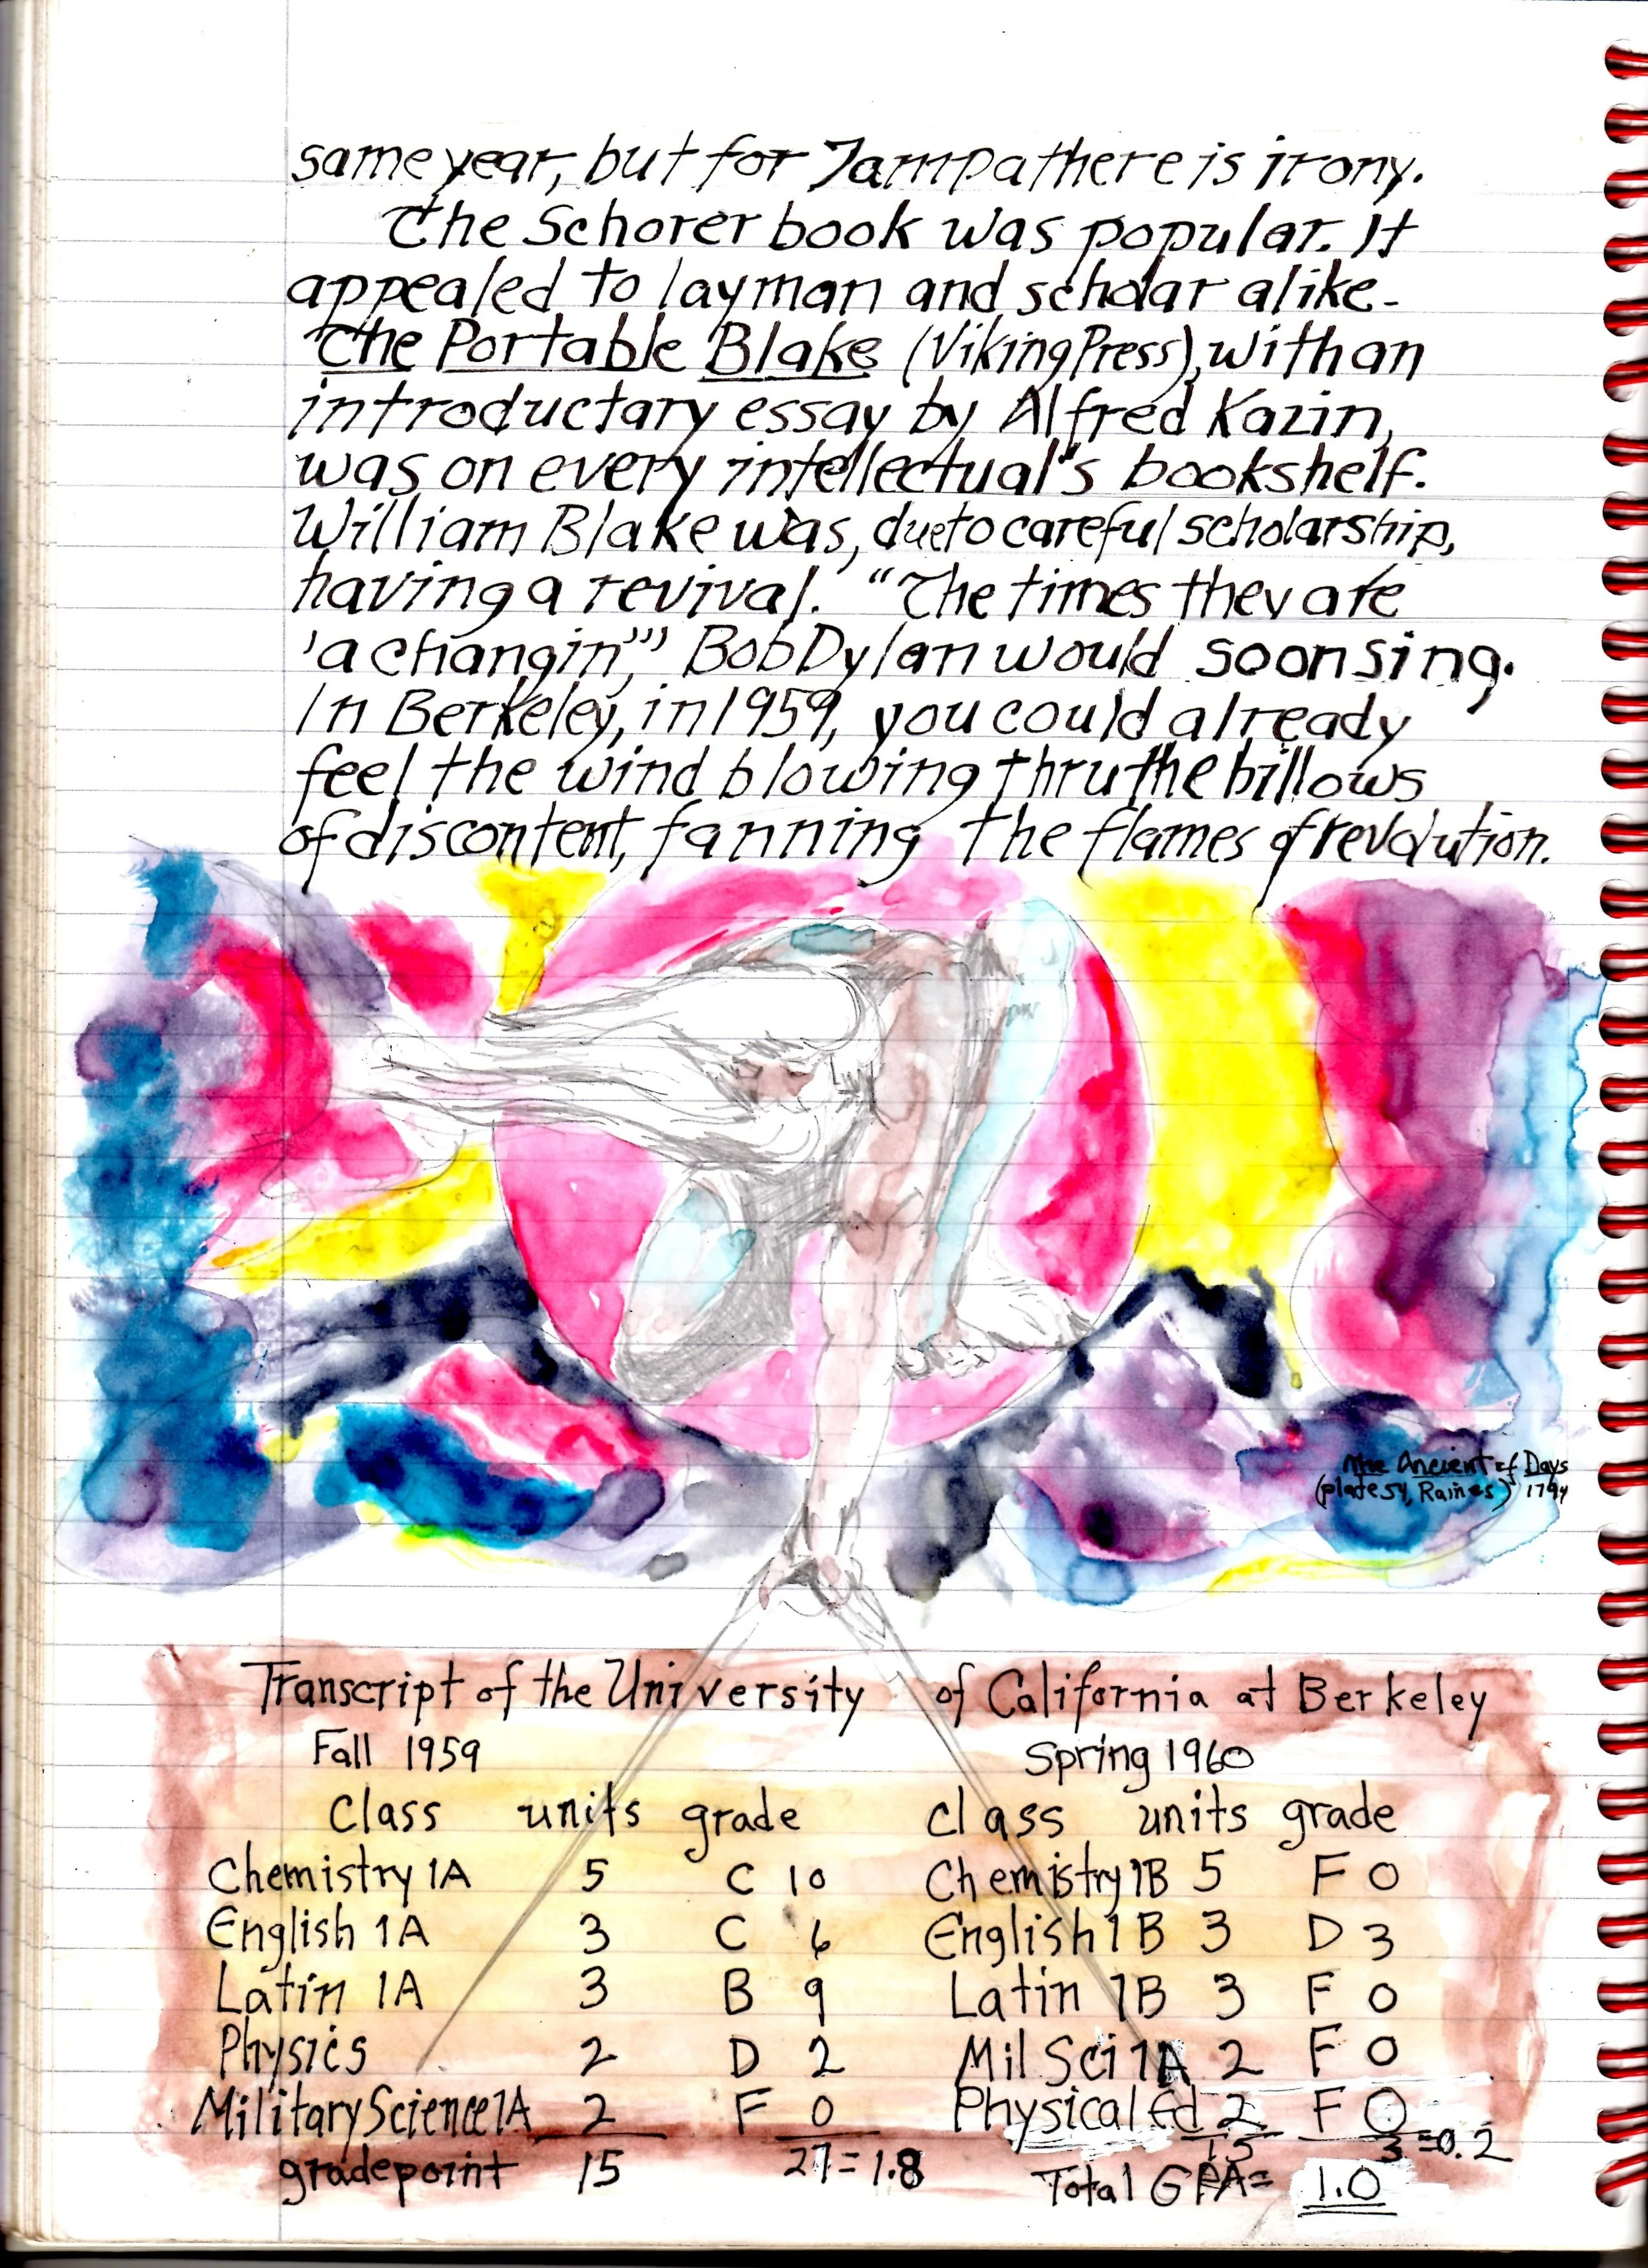 same year, but for Tampa there is irony.
The Schorer book was popular. It
appealed to layman and scholar alike.
The Portable Blake (Viking Press), with an
introductary essay by Alfred Kazin,
was on every intellectual's bookshelf.
William Blake was, due to careful scholarship,
having a revival. "The times they are
'a changin'," Bob Dylan would soon sing.
In Berkeley, in 1959, you could already
feel the wind blowing thru the billows
of discontent, fanning the flames of revolution.
The Ancient of Days
(plate 54, Raines) 1794
Transcript of the University of California at Berkeley
Fall 1959 Spring 1960
Class units grade class units grade
Chemistry 1A 5 C 10 Chemistry 1B 5 F 0
English 1A 3 C 6 English 1B 3 D 3
Latin 1A 3 B 9 Latin 1B 3 F 0
Physics 2 D 2 Mil Sci 1A 2 F 0
Military Science 1A 2 F 0 Physical Ed 2 F 0
gradepoint 15 27=1.8 15 3=0.2
Total GPA= 1.0